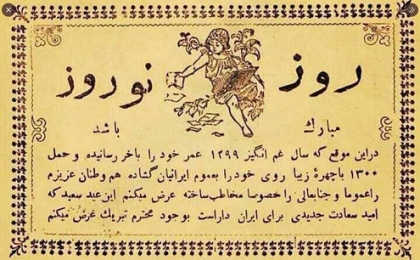 روز نوروز
مبارك باشد
دراین موقع که سال غم انگیز ۱۲۹۹ عمر خود را باخر رسانیده و حمل
۱۳۰۰ باچهرهٔ زیبا روی خود را بعموم ایرانیان گشاده هم وطنان عزیزم
را عموما و جنابعالی را خصوصا مخاطب ساخته عرض میکنم این عید سعید که
امید سعادت جدیدی برای ایران داراست بوجود محترم تبریك عرض میکنم